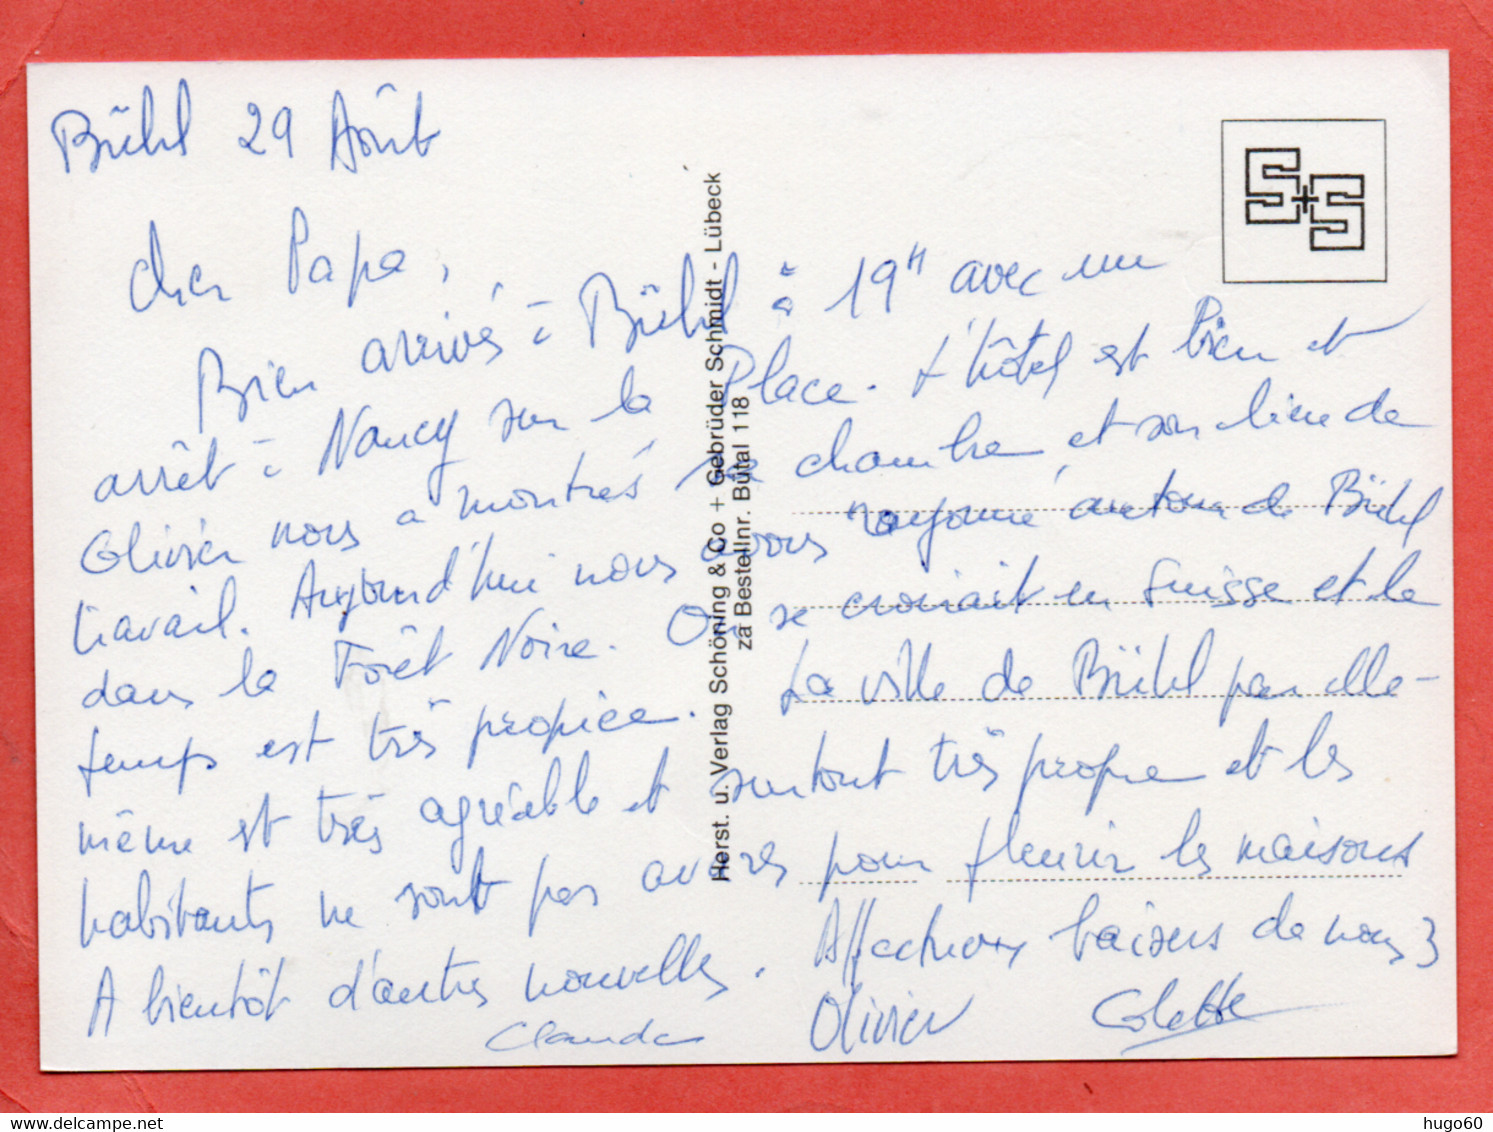 Bühl 29 Août
Cher Papa,
Bien arrivés à Bühl à 19H avec un
arrêt à Nancy sur la Place. L'hôtel est bien et
Olivier nous a montrés sa chambre et son lieu de
travail. Aujourd'hui nous avons rayonné autour de Bühl
dans la Forêt Noire. On se croirait en Suisse et le
temps est très propice. La ville de Bühl par elle-
même est très agréable et surtout très propre et les
habitants ne sont pas avares pour fleurir les maisons
A bientôt d'autres nouvelles. Affectueux baisers de nous 3
Claude Olivier Colette
Herst. u. Verlag Schöning & Co + Gebrüder Schmidt - Lübeck
za Bestellnr. Bütal 118
S+S
hugo60